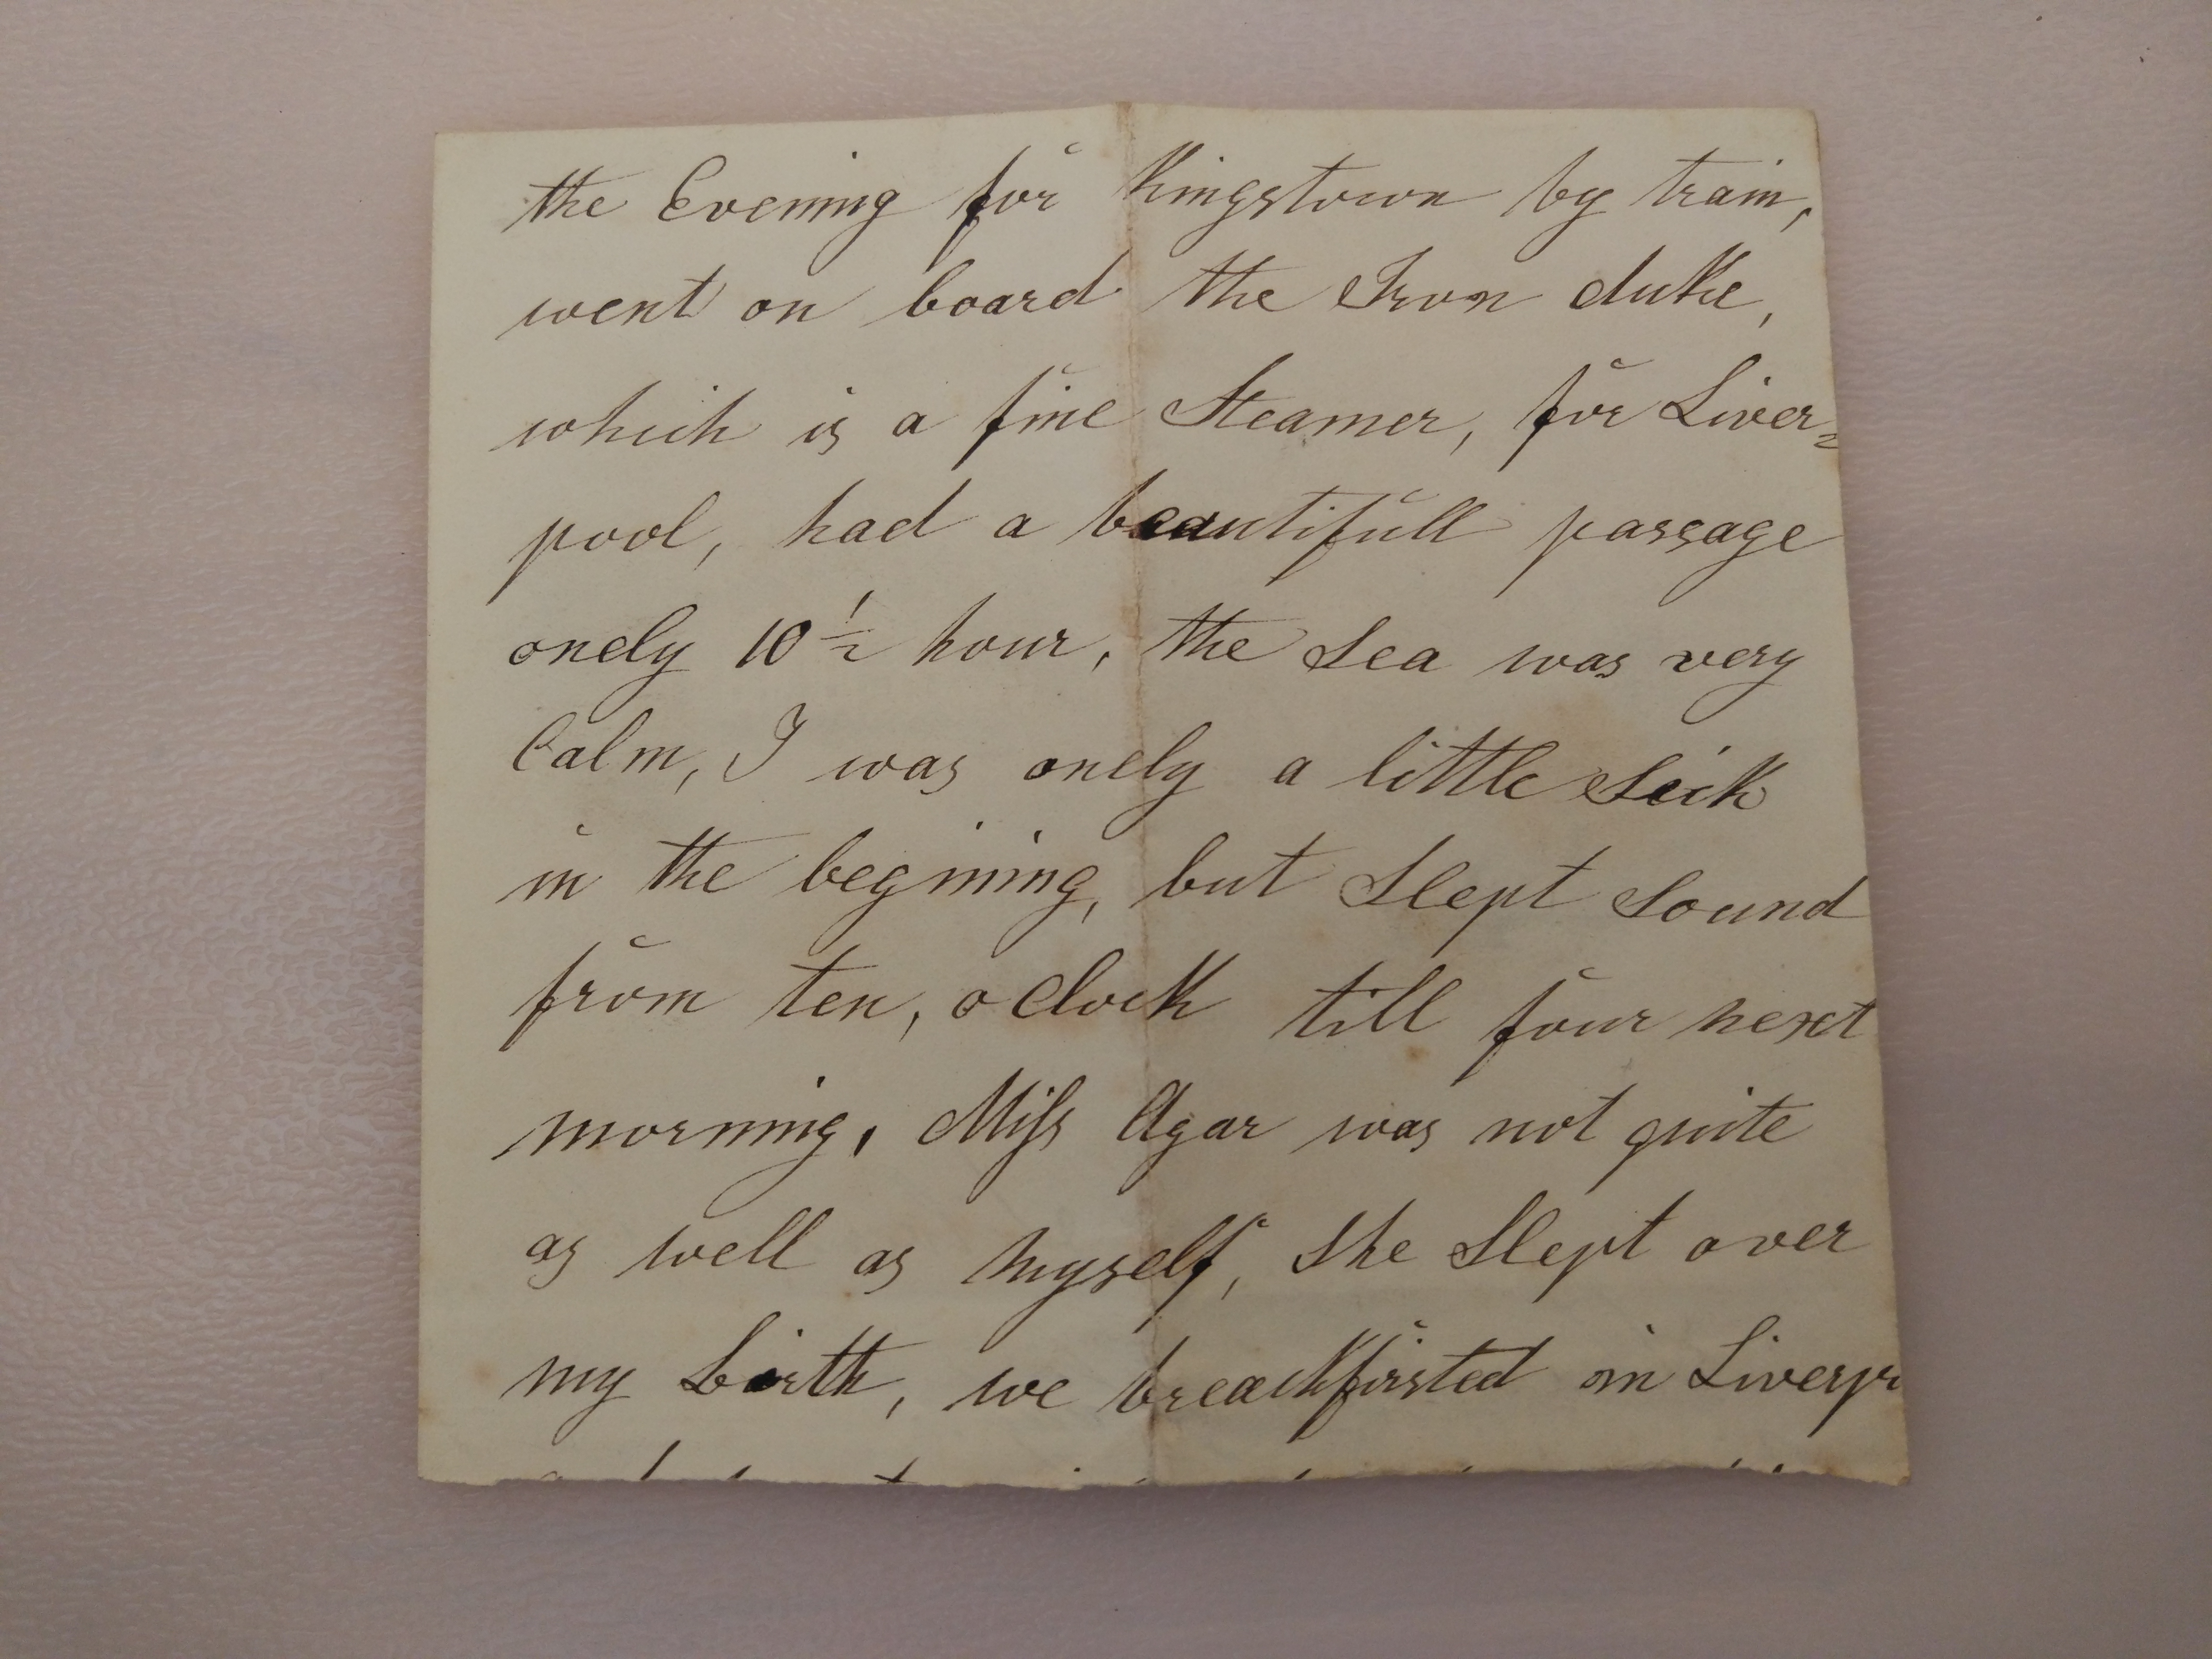 the Evening for Kingstown by train,
went on board the Iron duke,
which is a fine Steamer, for Liver=
pool, had a beautifull passage
onely 10½ hour, the Sea was very
Calm, I was onely a little Seik
in the begining, but Slept Sound
from ten, o Clock till four next
morning, Miſs Agar was not quite
as well as myself, She Slept over
my birth, we breackfirsted in Liverpo